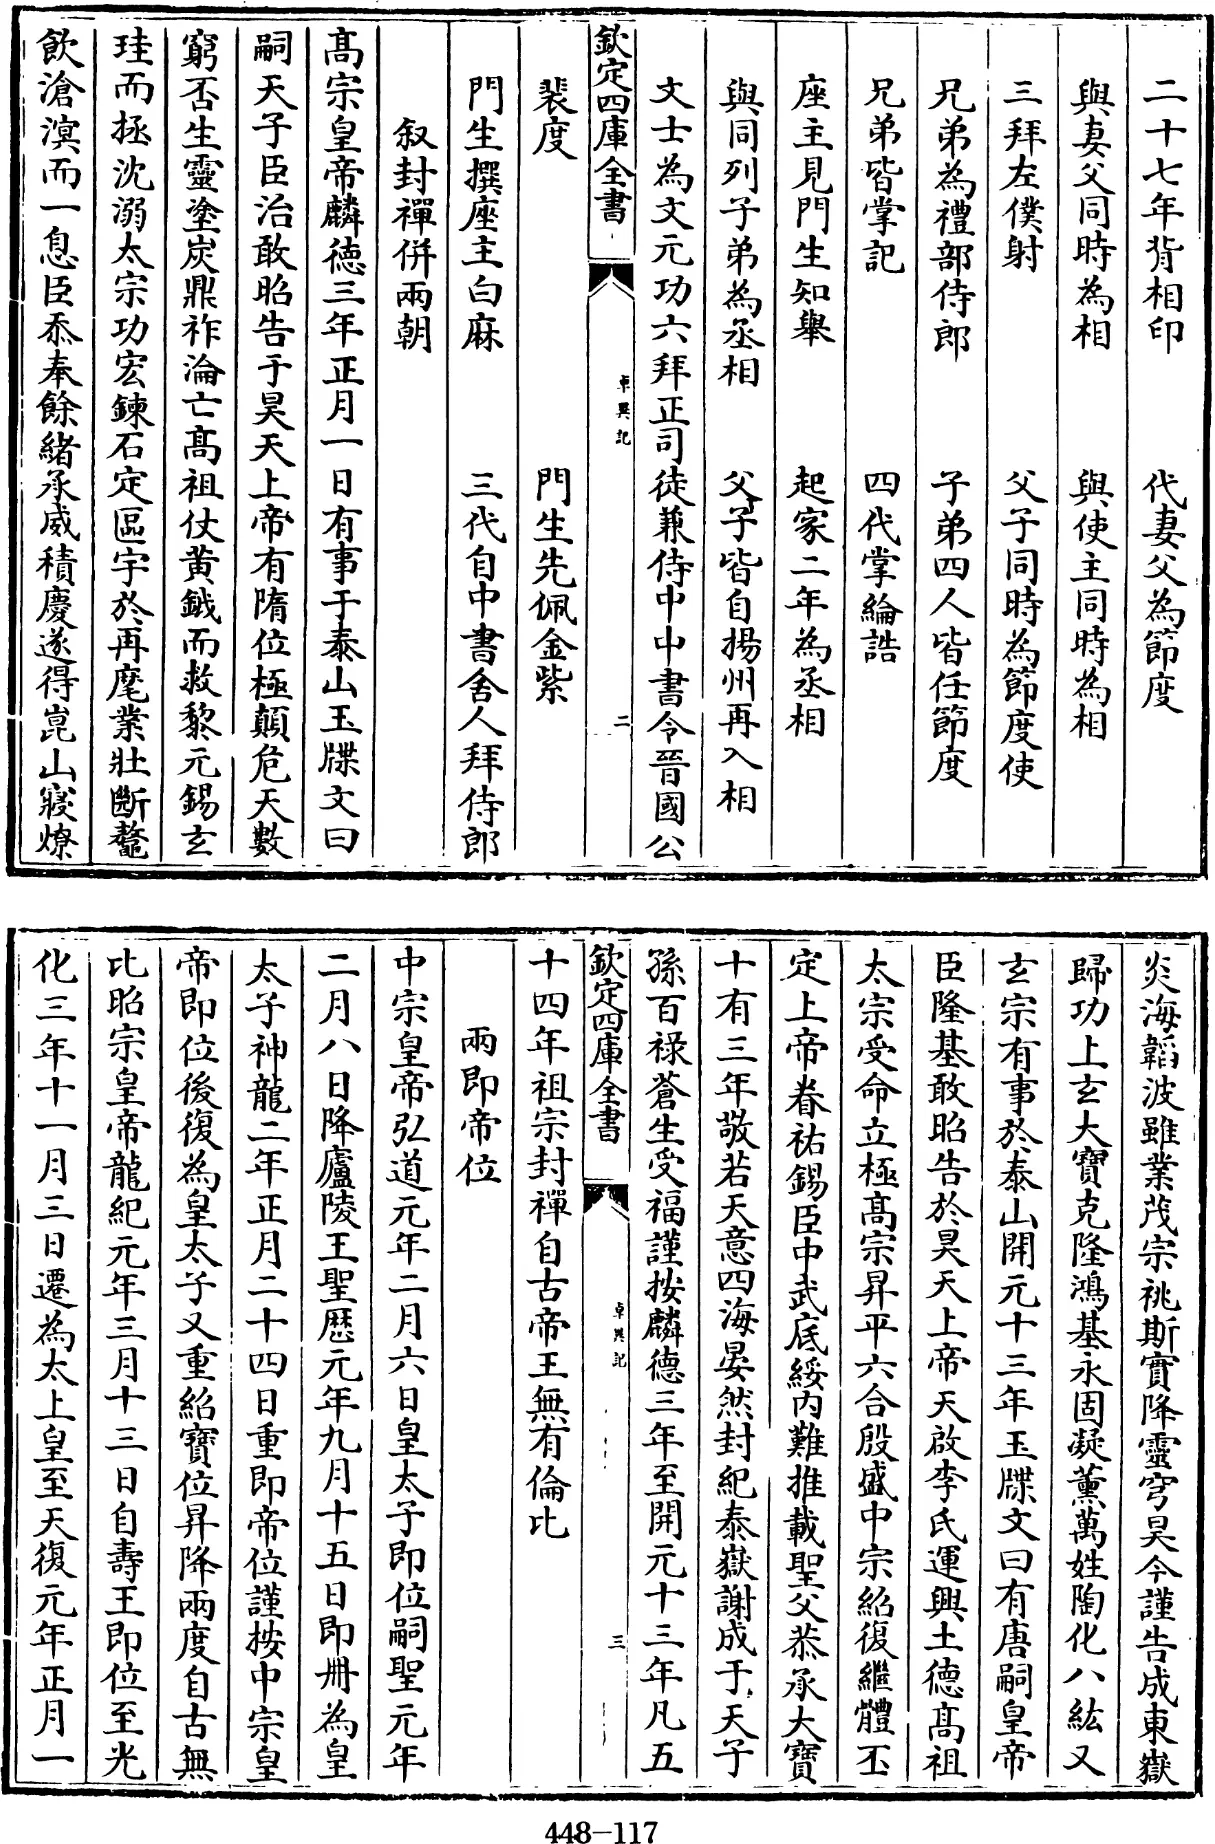 二十七年背相印　代妻父為節度
與妻父同時為相　與使主同時為相
三拜左僕射　父子同時為節度使
兄弟為禮部侍郎　子弟四人皆任節度
兄弟皆掌記　四代掌綸誥
座主見門生知舉　起家二年為丞相
與同列子弟為丞相　父子皆自揚州再入相
文士為文元功六拜正司徒兼侍中中書令晉國公
欽定四庫全書　卓異記　二
裴度　門生先佩金紫
門生撰座主白麻　三代自中書舍人拜侍郎
叙封禪併兩朝
髙宗皇帝麟徳三年正月一日有事于泰山玉牒文曰
嗣天子臣治敢昭告于昊天上帝有隋位極顛危天數
窮否生靈塗炭鼎祚淪亡髙祖仗黄鉞而救黎元錫玄
珪而拯沈溺太宗功宏鍊石定區宇於再麾業壯斷鼇
飲滄溟而一息臣忝奉餘緒承威積慶遂得崑山寢燎
炎海韜波雖業茂宗祧斯實降靈穹昊今謹告成東嶽
歸功上玄大寶克隆鴻基永固凝薰萬姓陶化八紘又
玄宗有事於泰山開元十三年玉牒文曰有唐嗣皇帝
臣隆基敢昭告於昊天上帝天啟李氏運興土德髙祖
太宗受命立極髙宗昇平六合殷盛中宗紹復繼體丕
定上帝眷祐錫臣中武底綏內難推載聖父恭承大寶
十有三年敬若天意四海晏然封紀泰嶽謝成于天子
孫百祿蒼生受福謹按麟德三年至開元十三年凡五
欽定四庫全書　卓異記　三
十四年祖宗封禪自古帝王無有倫比
兩即帝位
中宗皇帝弘道元年二月六日皇太子即位嗣聖元年
二月八日降廬陵王聖厯元年九月十五日即冊為皇
太子神龍二年正月二十四日重即帝位謹按中宗皇
帝即位後復為皇太子又重紹寶位昇降兩度自古無
比昭宗皇帝龍紀元年三月十三日自壽王即位至光
化三年十一月三日遷為太上皇至天復元年正月一
448-117